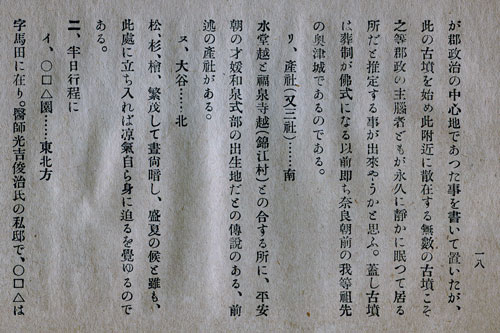 一八
が郡政治の中心地であつた事を書いて置いたが、
此の古墳を始め此附近に散在する無數の古墳こそ
之等郡政の主腦者どもが永久に靜かに眠つて居る
所だと推定する事が出來やうかと思ふ。蓋し古墳
は葬制が佛式になる以前卽ち奈良朝前の我等祖先
の奧津城であるのである。
リ、產社(又三社)……南
水堂越と福泉寺越(錦江村)との合する所に、平安
朝の才媛和泉式部の出生地だとの傳說のある、前
述の產社がある。
ヌ、大谷……北
松、杉、檜、繁茂して晝尙暗し、盛夏の候と雖も、
此處に立ち入れば凉氣自ら身に迫るを覺ゆるので
ある。
二、半日行程に
イ、〇口△園……東北方
字馬田に在り。醫師光吉俊治氏の私邸で、〇口△は